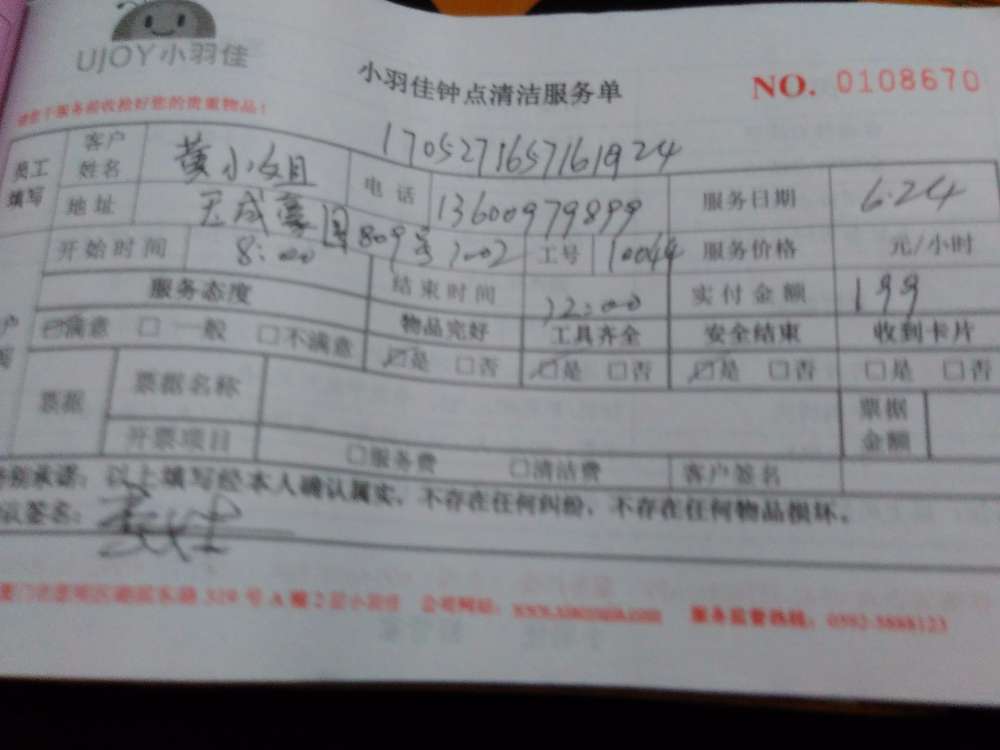 UJOY小羽佳
小羽佳钟点清洁服务单
NO. 0108670
请您于服务前收捡好您的贵重物品！
1705271657161924
员工填写 客户姓名 黄小姐 电话 13600979899 服务日期 6.24
地址 天成豪园809号1002 工号 10044 服务价格 元/小时
开始时间 8:00 结束时间 12:00 实付金额 199
服务态度 物品完好 工具齐全 安全结束 收到卡片
☑满意 □一般 □不满意 ☑是 □否 ☑是 □否 ☑是 □否 □是 □否
票据 票据名称 票据金额
开票项目 □服务费 □清洁费 客户签名
承诺：以上填写经本人确认属实，不存在任何纠纷，不存在任何物品损坏。
签名：
号A幢2层小羽佳 公司网站： 服务监督热线：